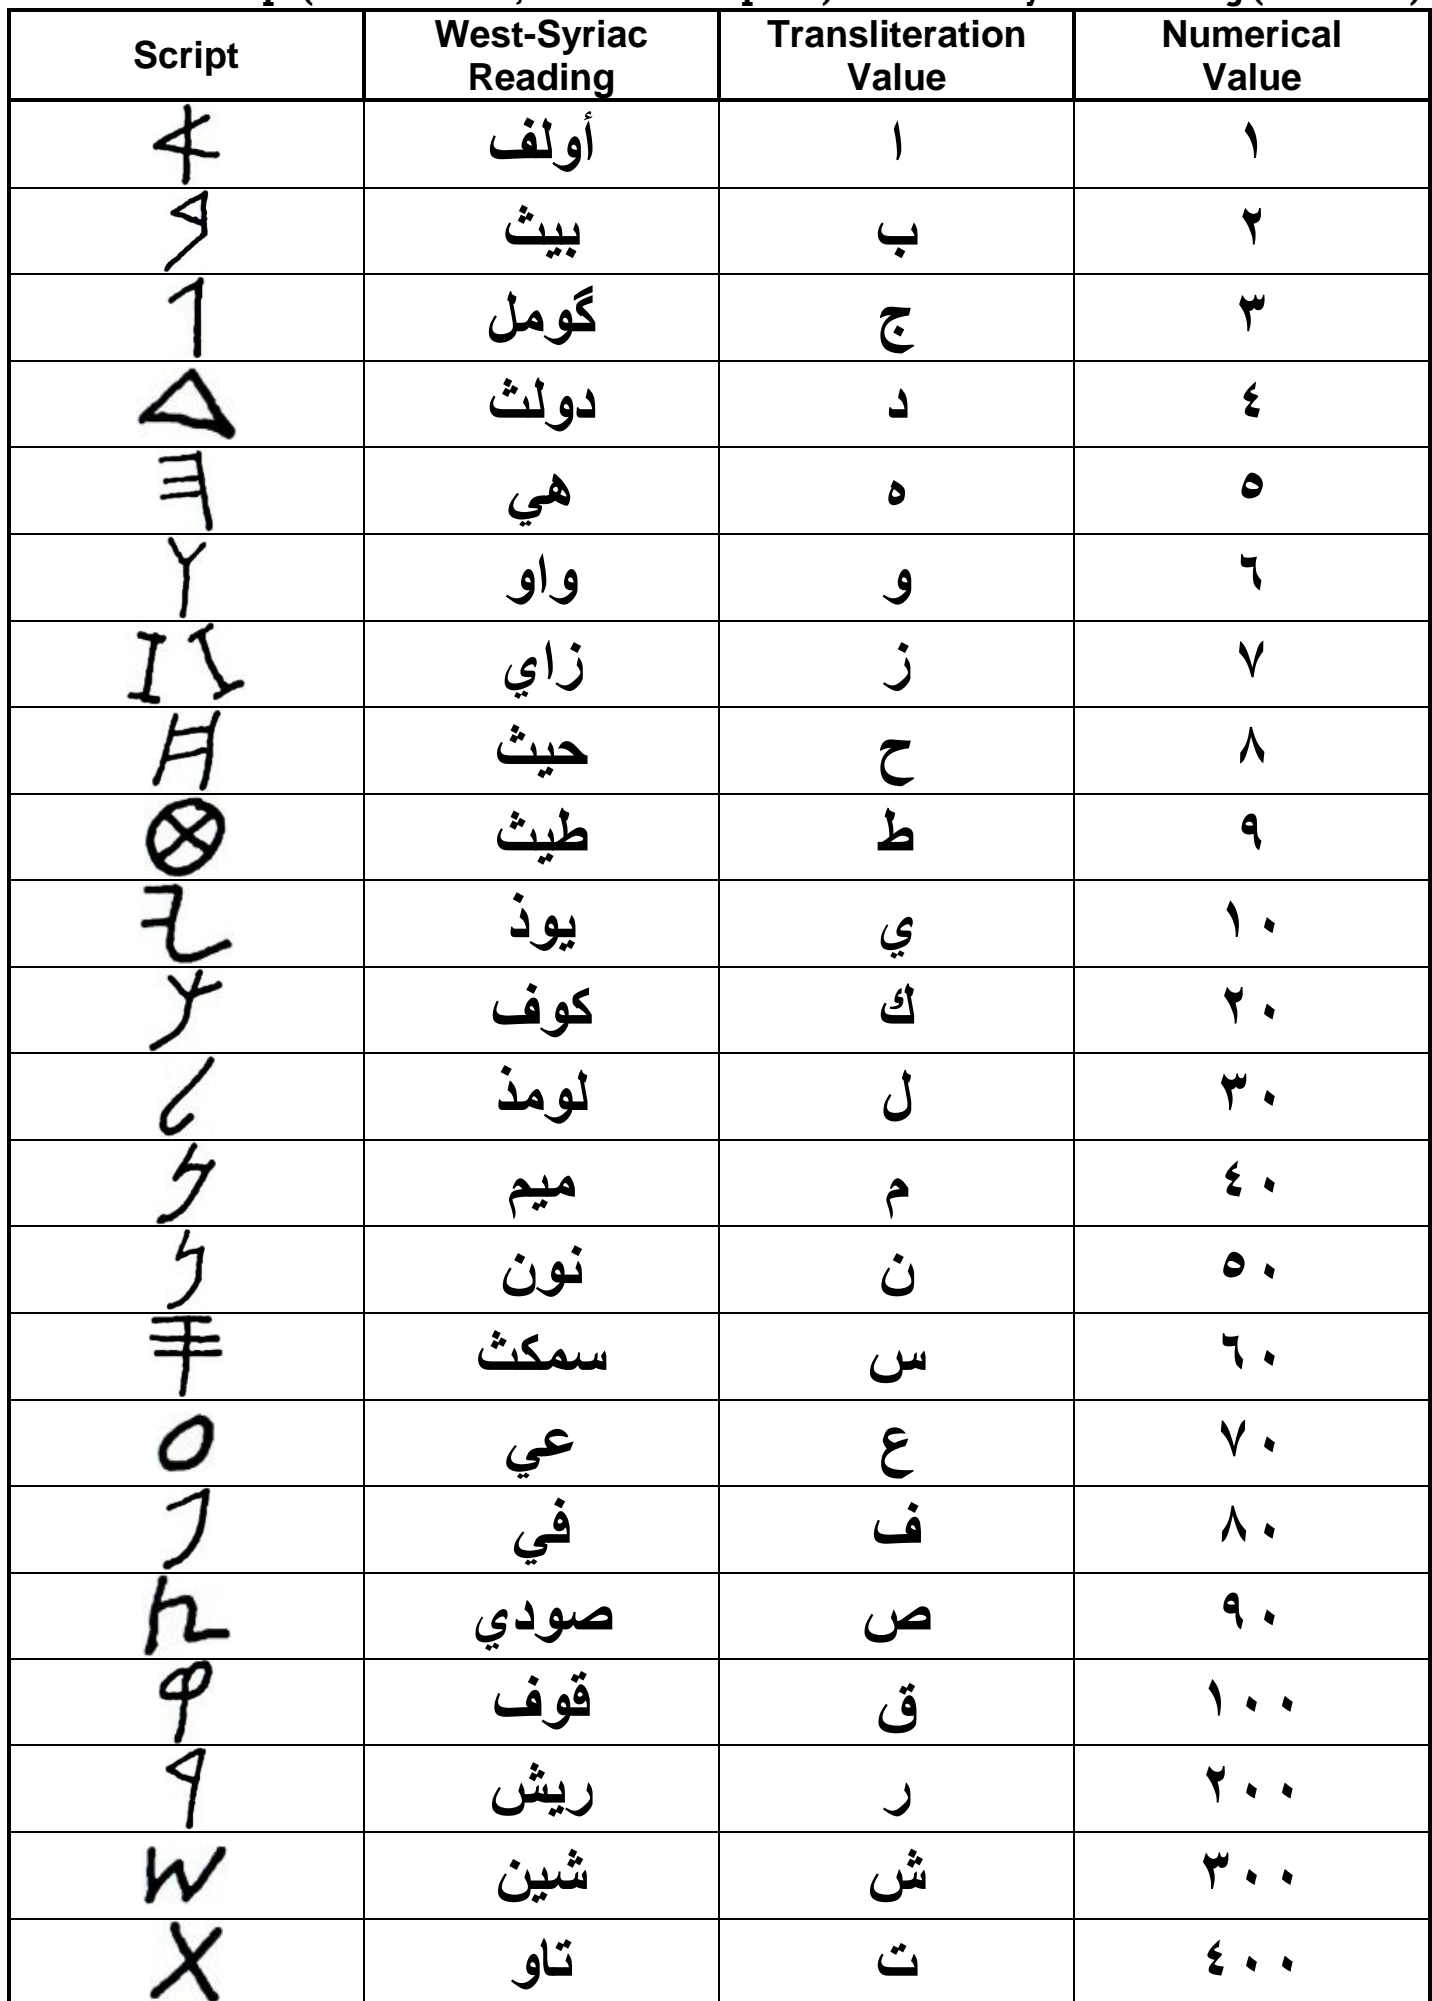 Script West-Syriac Reading Transliteration Value Numerical Value
𐤀 أولف ا ١
𐤁 بيث ب ٢
𐤂 گومل ج ٣
𐤃 دولث د ٤
𐤄 هي ه ٥
𐤅 واو و ٦
𐤆 زاي ز ٧
𐤇 حيث ح ٨
𐤈 طيث ط ٩
𐤉 يوذ ي ١٠
𐤊 كوف ك ٢٠
𐤋 لومذ ل ٣٠
𐤌 ميم م ٤٠
𐤍 نون ن ٥٠
𐤎 سمكث س ٦٠
𐤏 عي ع ٧٠
𐤐 في ف ٨٠
𐤑 صودي ص ٩٠
𐤒 قوف ق ١٠٠
𐤓 ريش ر ٢٠٠
𐤔 شين ش ٣٠٠
𐤕 تاو ت ٤٠٠